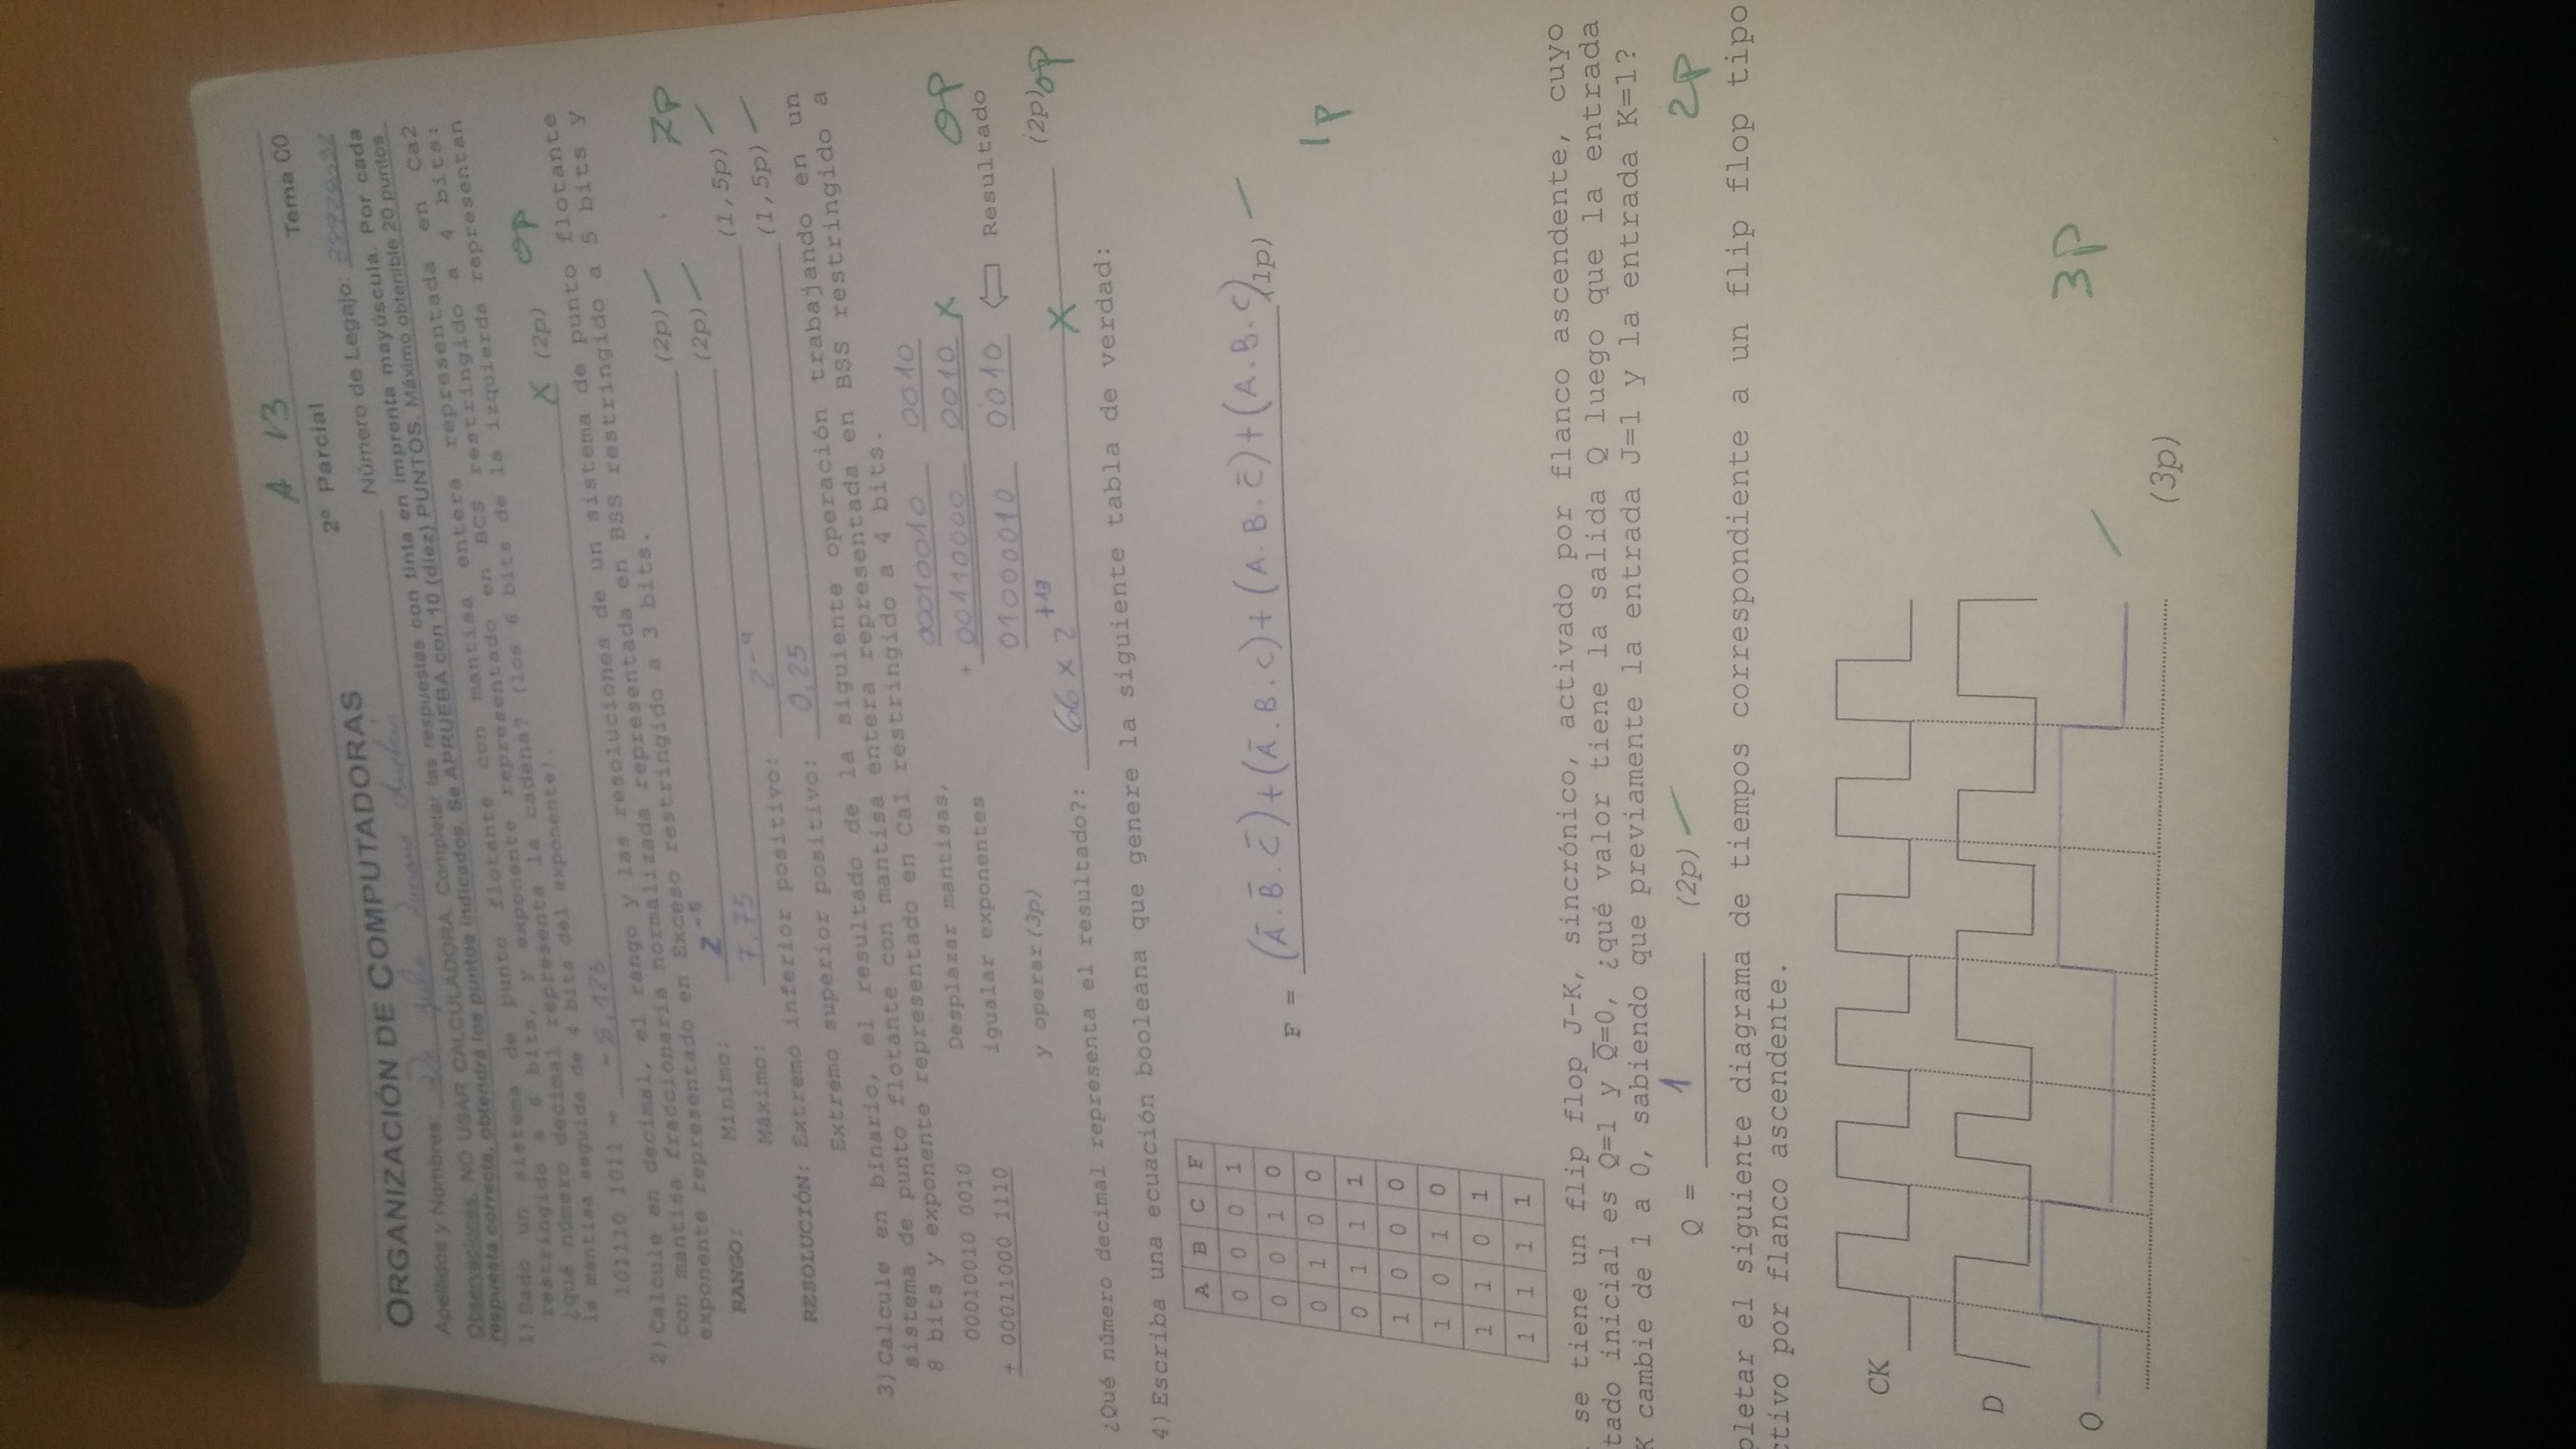 A 13
2º Parcial Tema C0
ORGANIZACIÓN DE COMPUTADORAS
Número de Legajo:
Apellidos y Nombres: De Luciano
Observaciones: NO USAR CALCULADORA. Completar las respuestas con tinta en imprenta mayúscula. Por cada
respuesta correcta, obtendrá los puntos indicados. Se APRUEBA con 10 (diez) PUNTOS. Máximo obtenible 20 puntos
1) Dado un sistema de punto flotante con mantisa entera representada en Ca2
restringido a 6 bits, y exponente representado en BCS restringido a 4 bits:
¿qué número decimal representa la cadena? (los 6 bits de la izquierda representan
la mantisa seguida de 4 bits del exponente).
101110 1011 = X (2p) 0p
2) Calcule en decimal, el rango y las resoluciones de un sistema de punto flotante
con mantisa fraccionaria normalizada representada en BSS restringido a 5 bits y
exponente representado en Exceso restringido a 3 bits.
RANGO: Mínimo: (2p) ✓ 7p
Máximo: 7,75 (2p) ✓
RESOLUCIÓN: Extremo inferior positivo: 2⁻⁹ (1,5p) ✓
Extremo superior positivo: 0,25 (1,5p) ✓
3) Calcule en binario, el resultado de la siguiente operación trabajando en un
sistema de punto flotante con mantisa entera representada en BSS restringido a
8 bits y exponente representado en Ca1 restringido a 4 bits.
00010010 0010 Desplazar mantisas, 00010010 0010
+ 00011000 1110 igualar exponentes + 00110000 0010 X 0p
y operar (3p) 01000010 0010 ⇦ Resultado
¿Qué número decimal representa el resultado?: 66 x 2 X (2p) 0p
4) Escriba una ecuación booleana que genere la siguiente tabla de verdad:
A B C F
0 0 0 1
0 0 1 0
F = (A̅.B̅.C̅)+(A̅.B.C)+(A.B.C̅)+(A.B.C) (1p) ✓
0 1 0 0
1p
0 1 1 1
1 0 0 0
1 0 1 0
1 1 0 1
1 1 1 1
se tiene un flip flop J-K, sincrónico, activado por flanco ascendente, cuyo
tado inicial es Q=1 y Q̅=0, ¿qué valor tiene la salida Q luego que la entrada
K cambie de 1 a 0, sabiendo que previamente la entrada J=1 y la entrada K=1?
Q = 1 (2p) ✓ 2p
pletar el siguiente diagrama de tiempos correspondiente a un flip flop tipo
ctivo por flanco ascendente.
CK
D
Q
✓ 3p
(3p)